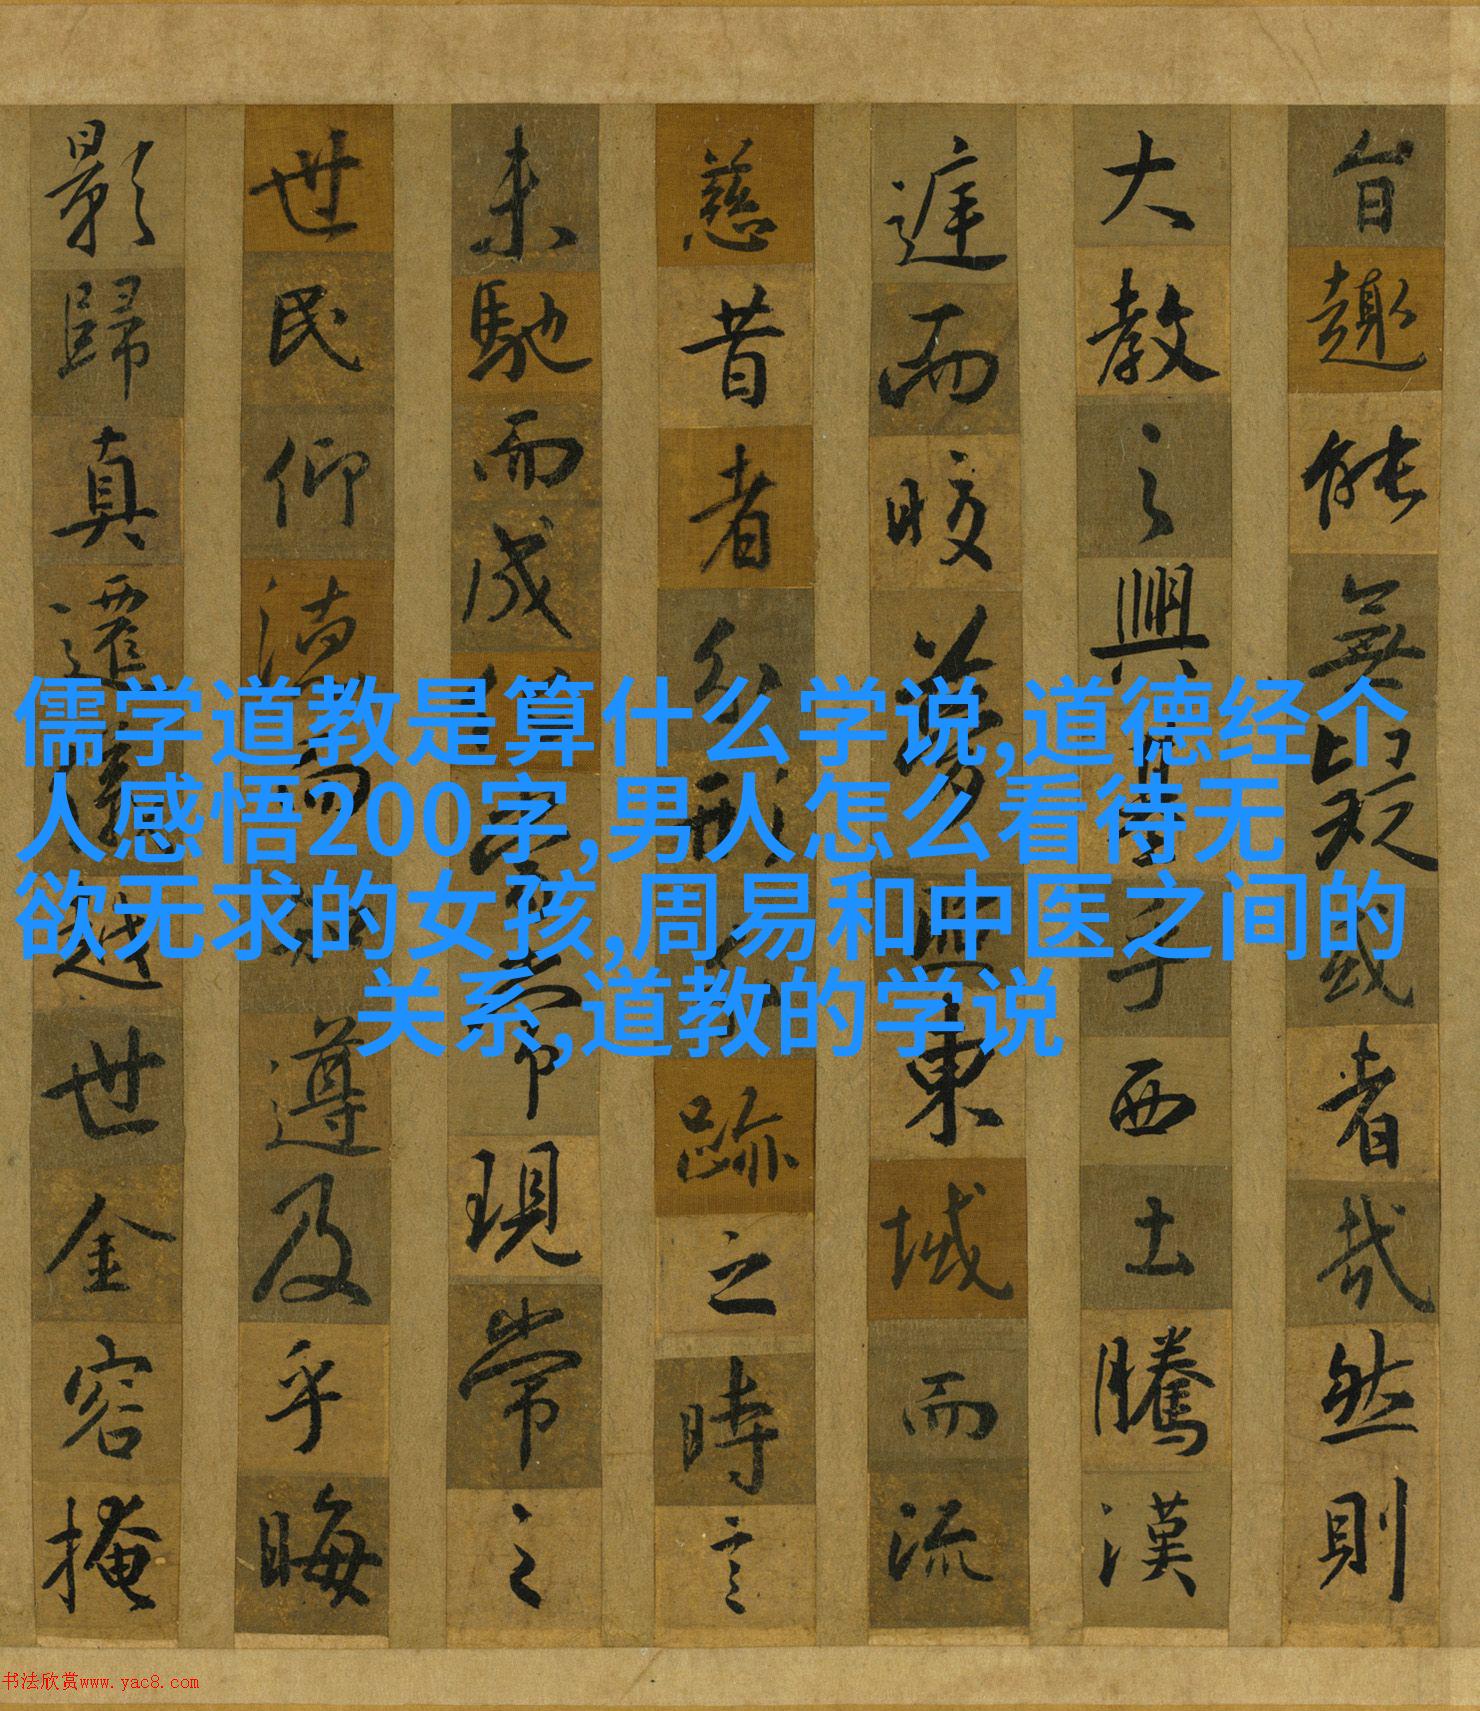 旨趣能無疑惑者哉然則
大教之興基乎西土騰漢
庭而皎夢照東域而流
慈昔者分形分跡之時言
未馳而成化當常現常之
世民仰德而知遵及乎晦
影歸真遷儀越世金容掩
儒学道教是算什么学说,道德经个
人感悟200字,男人怎么看待无
欲无求的女孩,周易和中医之间的
关系,道教的学说
书法欣赏www.yac8.com